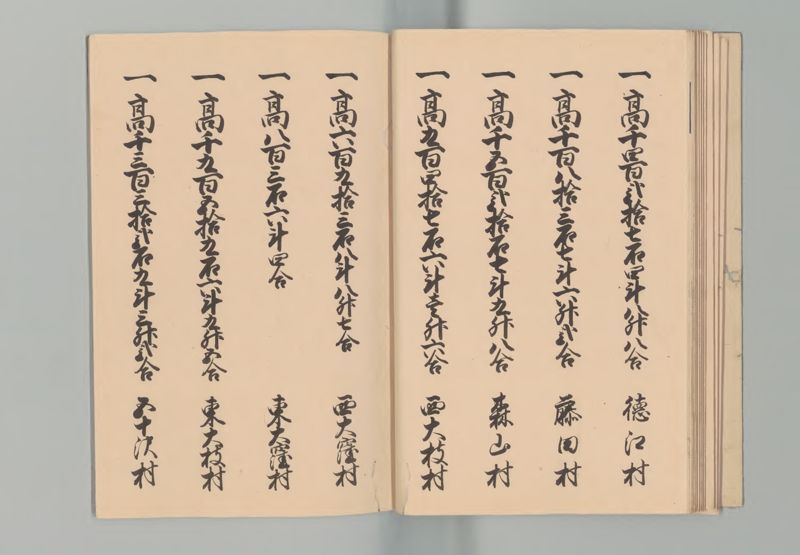 一高千四百弐拾七石四斗八升八合 徳江村
一高千百八拾三石七斗六升弐合 藤田村
一高千五百弐拾石七斗五升八合 森山村
一高九百四拾七石六斗壱升六合 西大枝村
一高六百九拾三石八斗八升七合 西大窪村
一高八百三石六斗四合 東大窪村
一高千九百五拾九石六斗九升五合 東大枝村
一高千三百三拾弐石九斗三升弐合 五十沢村